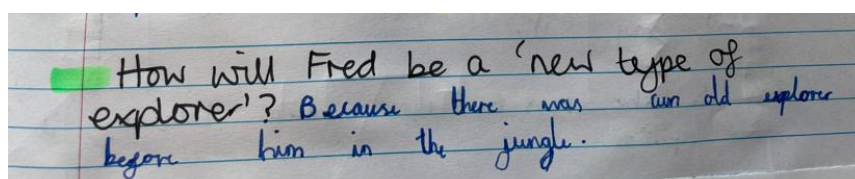 How will Fred be a 'new type of
explorer'? Because there was an old explorer
before him in the jungle.